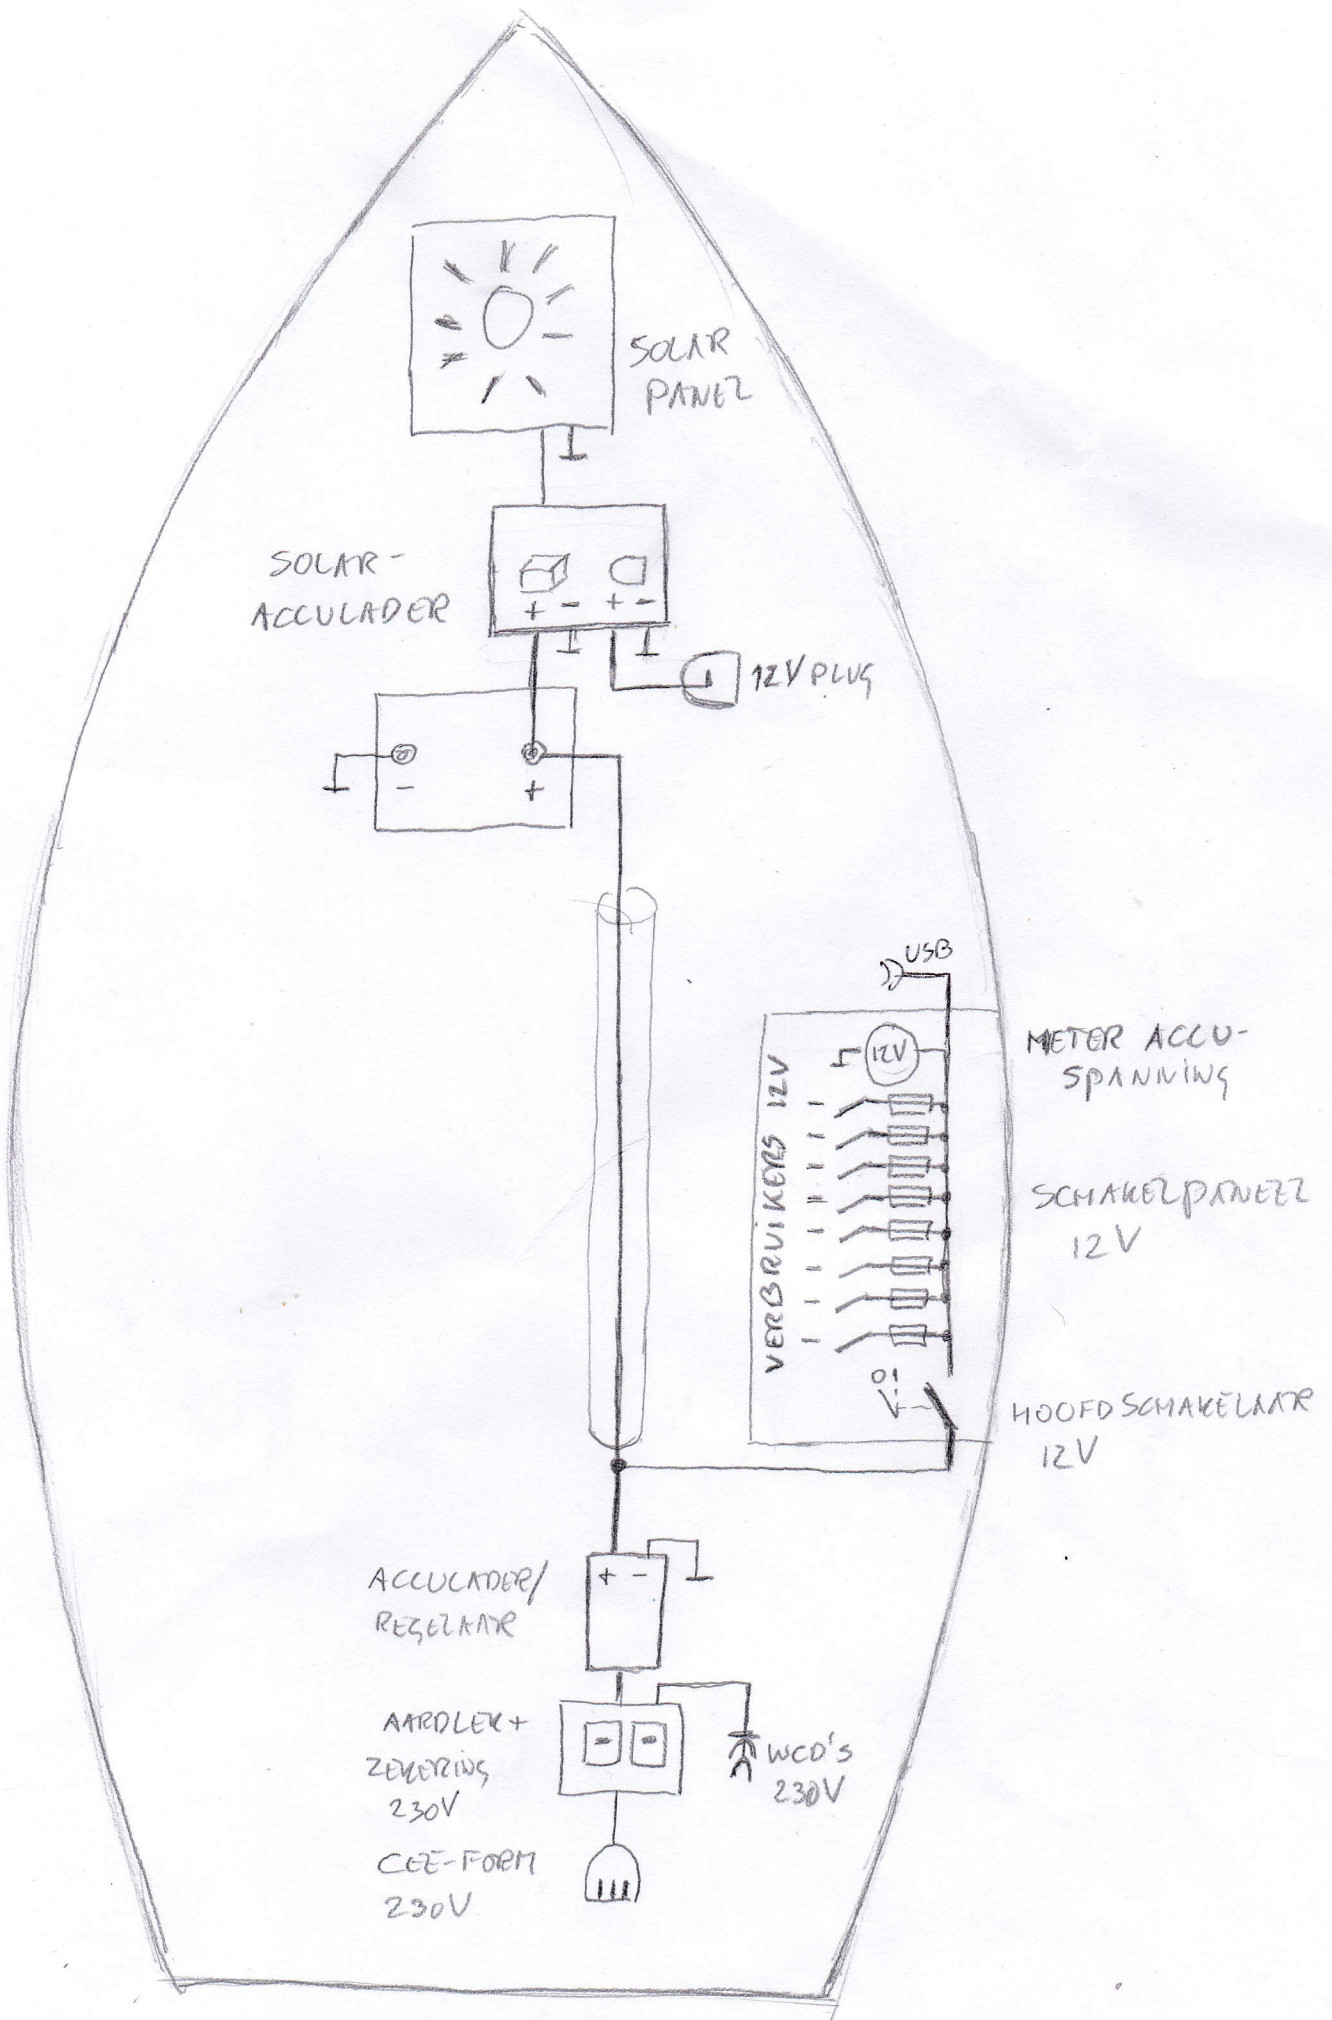 SOLAR
PANEL
SOLAR-
ACCULADER
+ - + -
12V PLUG
- +
USB
METER ACCU-
SPANNING
12V
VERBRUIKERS 12V
SCHAKELPANEEL
12V
0 1
HOOFDSCHAKELAAR
12V
ACCULADER/
REGELAAR
+ -
AARDLEK +
ZEKERING
230V
WCD'S
230V
CEE-FORM
230V